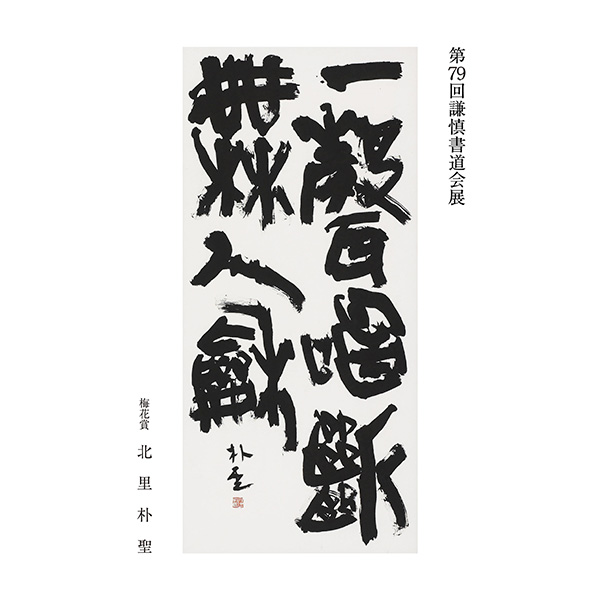 第79回謙慎書道会展
一聲唱斷
無人龢
朴聖
梅花賞 北里朴聖